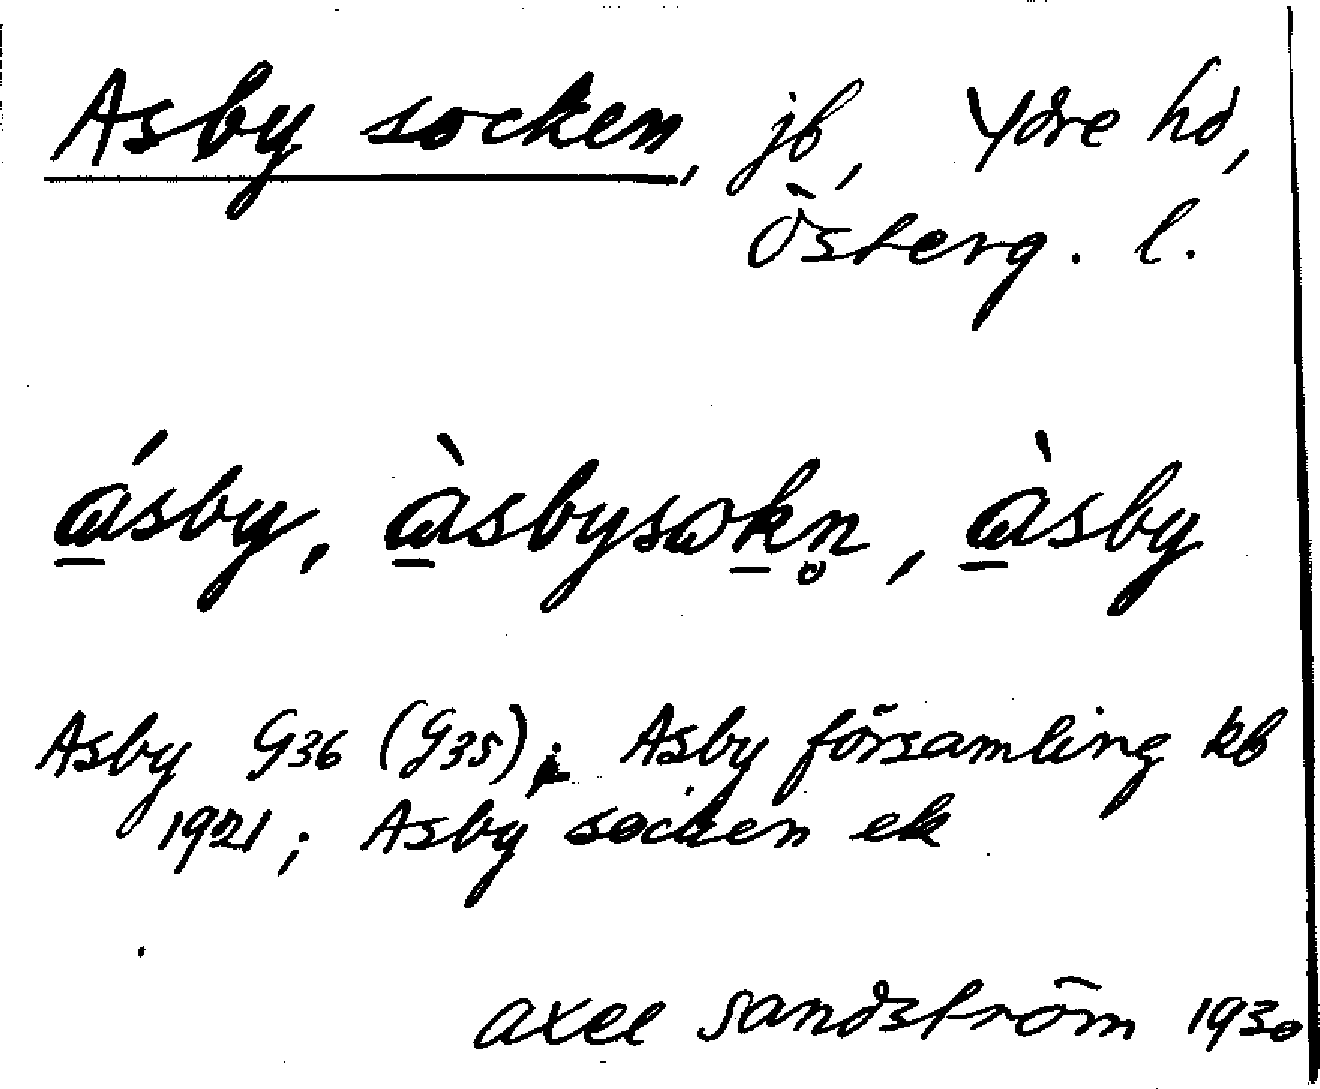 Asby socken, jb, Ydre hd,
Österg. l.
á̲sby, à̲sbysωk̲n̥, à̲sby
Asby G36 (G35); Asby församling kb
1921; Asby socken ek
Axel Sandström 1930